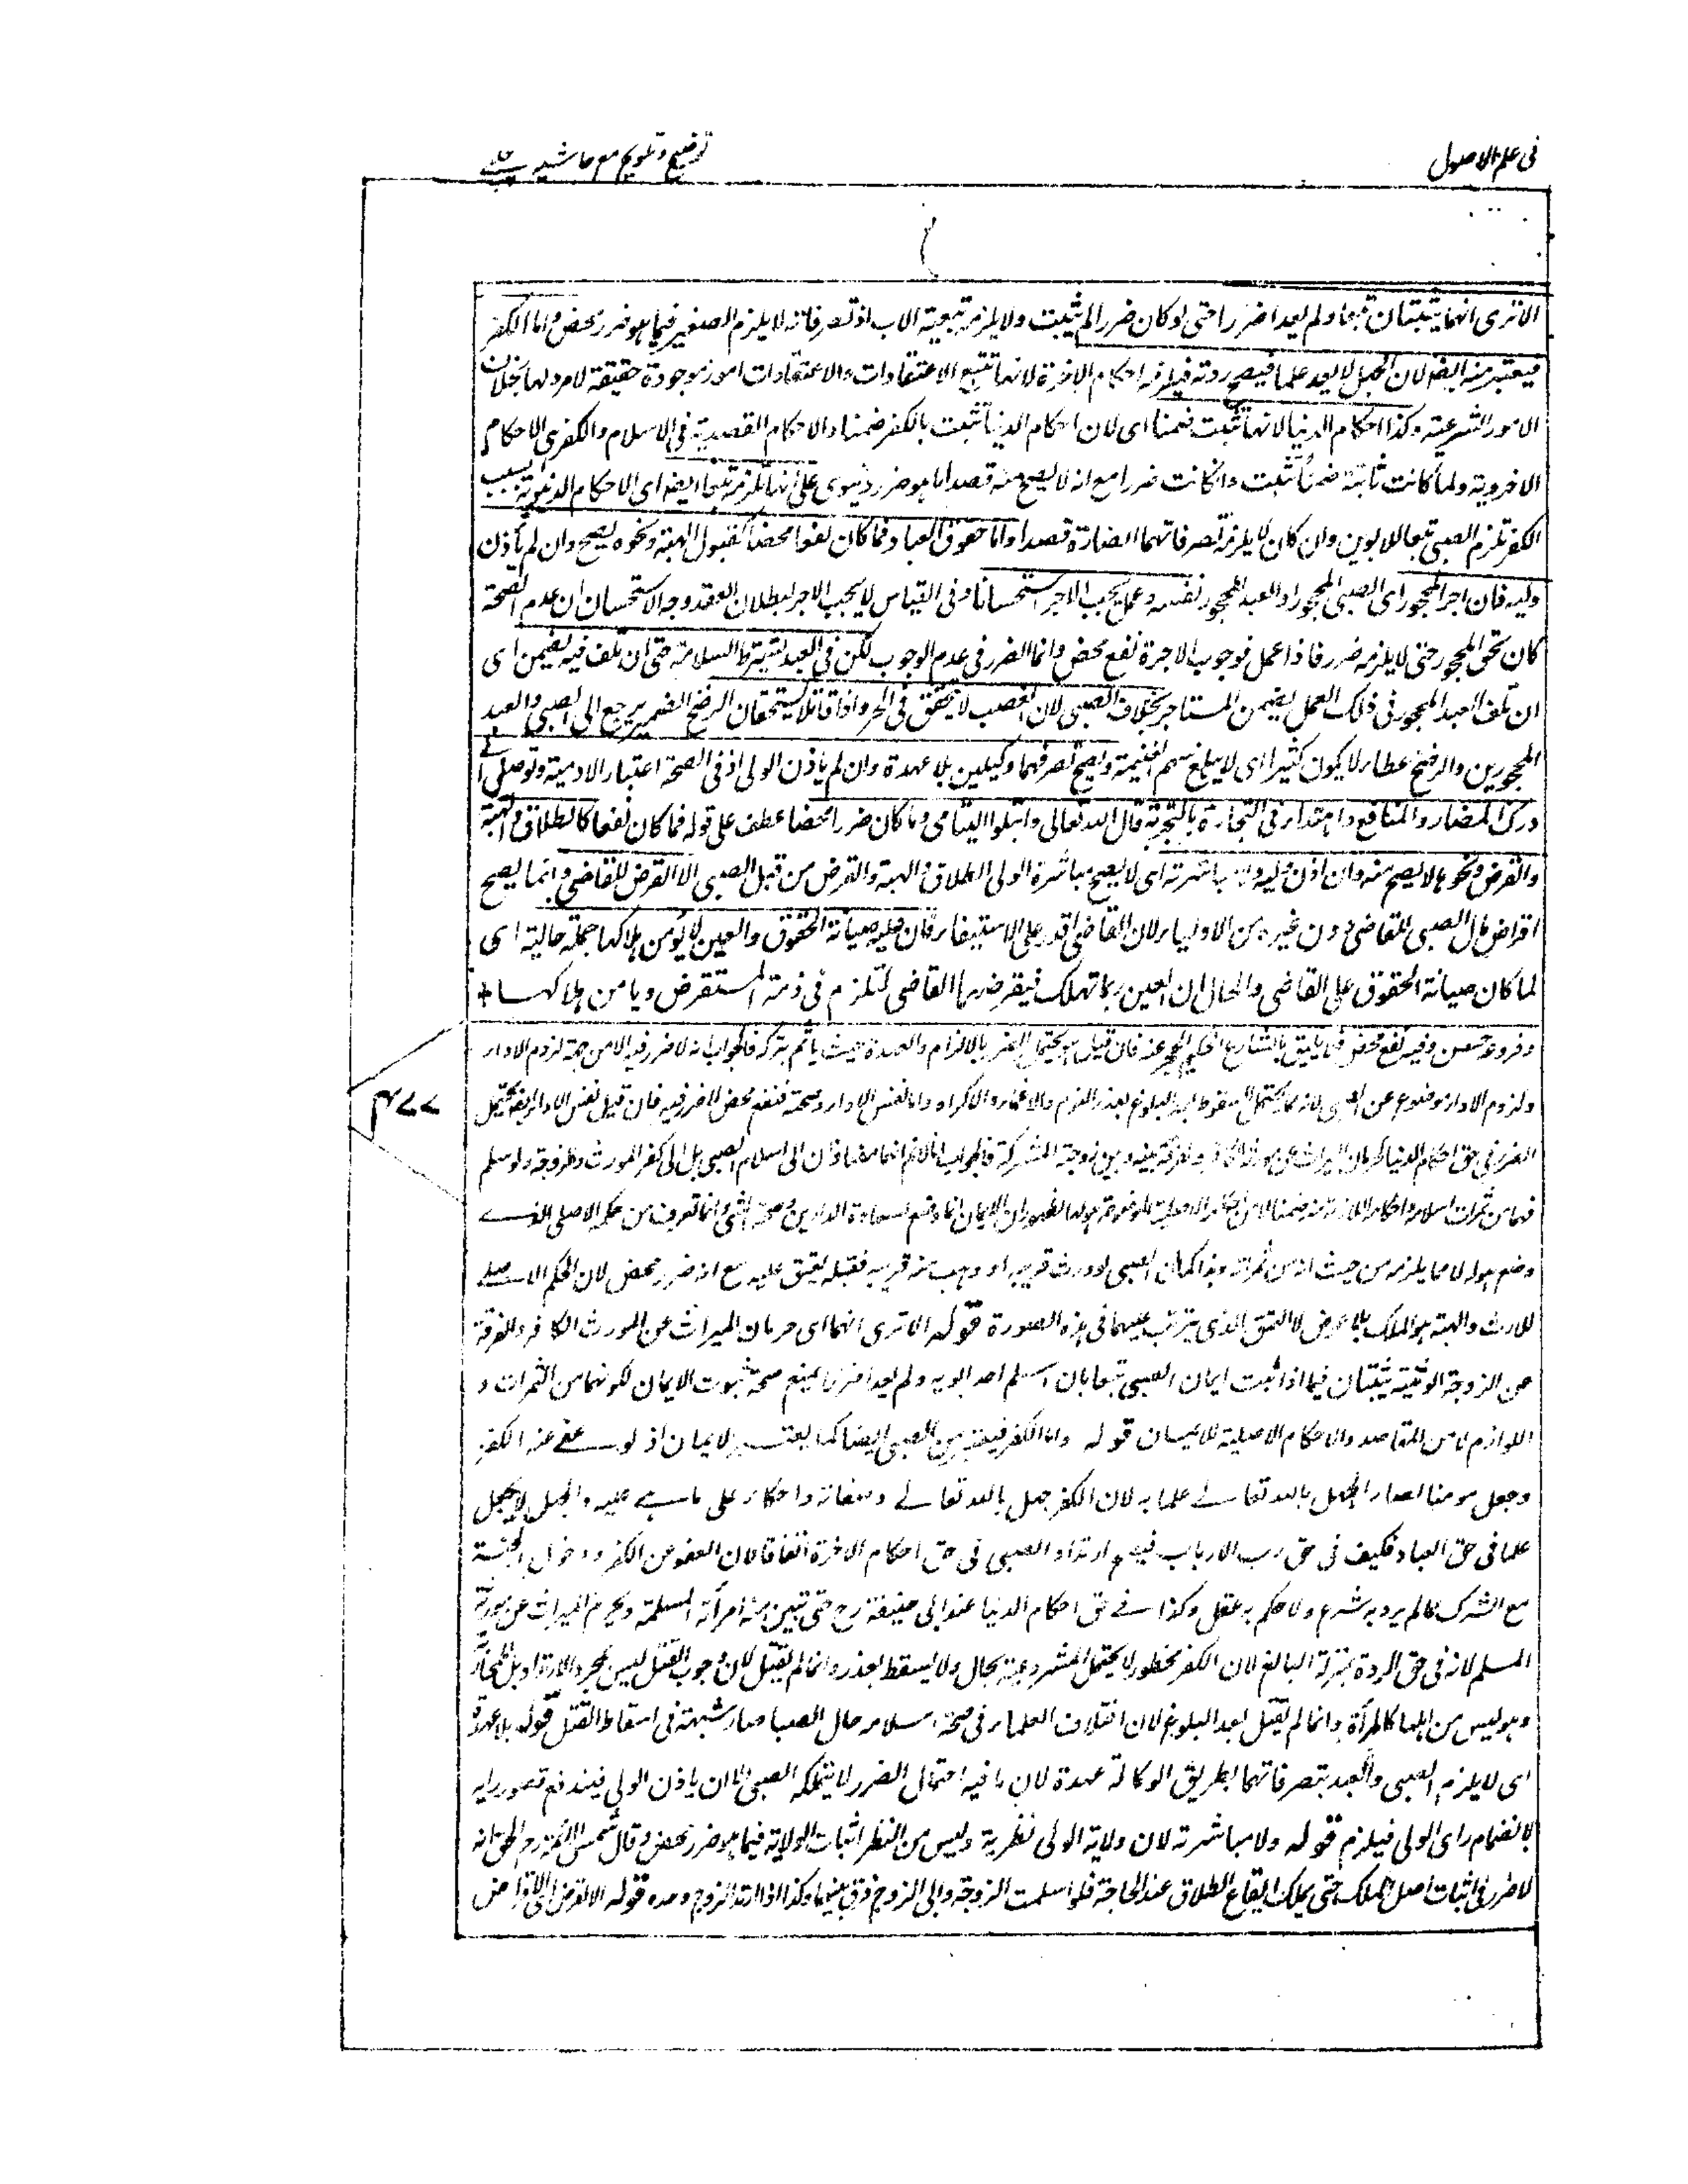 فى علم الاصول
توضيح وتلويح مع حاشيه
الا ترى انهما يثبتان تبعا ولم يعدا ضررا حتى لو كان ضررا لم يثبت ولا يلزم تبعية الاب اذ تصرفاته لا يلزم الصغير فيما هو ضرر محض واما الكفر
فيعتبر منه ايضا لان الجهل لا يعد علما فيصح ردته فيلزمه احكام الاخرة لانها تتبع الاعتقادات والاعتقادات امور موجودة حقيقة لا مرد لها بخلاف
الامور الشرعية وكذا احكام الدنيا لانها تثبت ضمنا اى لان احكام الدنيا تثبت بالكفر ضمنا والاحكام القصدية فى الاسلام والكفر هى الاحكام
الاخروية ولما كانت ثابتة ضمنا تثبت وان كانت ضررا مع انه لا يصح منه قصدا ما هو ضرر دنيوى على انها تلزم تبعا ايضا اى الاحكام الدنيوية بسبب
الكفر تلزم الصبى تبعا للابوين وان كان لا يلزمه تصرفاتهما الضارة قصدا واما حقوق العباد فما كان نفعا محضا كقبول الهبة ونحوه يصح وان لم ياذن
وليه فان اجر المحجور اى الصبى المحجور او العبد المحجور نفسه وعمل يجب الاجر استحسانا وفى القياس لا يجب الاجر لبطلان العقد وجه الاستحسان ان عدم الصحة
كان لحق المحجور حتى لا يلزمه ضرر فاذا عمل فوجوب الاجرة نفع محض وانما الضرر فى عدم الوجوب لكن فى العبد يشترط السلامة حتى ان تلف فيه يضمن اى
ان تلف العبد المحجور فى ذلك العمل يضمن المستاجر بخلاف الصبى لان الغصب لا يتحقق فى الحر واذا قاتلا يستحقان الرضخ الضمير يرجع الى الصبى والعبد
المحجورين والرضخ عطاء لا يكون كثيرا اى لا يبلغ سهم الغنيمة ويصح تصرفهما وكيلين بلا عهدة وان لم ياذن الولى اذ فى الصحة اعتبار الادمية وتوصل الى
درك المضار والمنافع واهتداء فى التجارة بالتجربة قال الله تعالى وابتلوا اليتامى وما كان ضررا محضا عطف على قوله فما كان نفعا كالطلاق والهبة
والقرض ونحوها لا يصح منه وان اذن وليه ولا مباشرته اى لا يصح مباشرة الولى الطلاق والهبة والقرض من قبل الصبى الا القرض للقاضى وانما يصح
اقراض مال الصبى للقاضى دون غيره من الاولياء لان القاضى اقدر على الاستيفاء فان عليه صيانة الحقوق والعين لا يؤمن هلاكها جملة حالية اى
لما كان صيانة الحقوق على القاضى والحال ان العين ربما تهلك فيقرضها القاضى لتلزم فى ذمة المستقرض ويامن هلاكها +
وفروعه حسن وفيه نفع محض فلا يليق بالشارع الحكيم الحجر عنه فان قيل هو يحتمل الضرر بالالزام والعهدة حيث ياثم بتركه فالجواب انه لا ضرر فيه الا من جهة لزوم الاداء
ولزوم الاداء موضوع عن الصبى لانه مما يحتمل السقوط بعد البلوغ بعذر النوم والاغماء والاكراه واما نفس الاداء وصحته فنفع محض لا ضرر فيه فان قيل نفس الاداء ايضا يحتمل
الضرر فى حق احكام الدنيا كحرمان الميراث عن مورثه الكافر والفرقة بينه وبين زوجته المشركة فالجواب انا لا نم انهما مضافان الى اسلام الصبى بل الى كفر المورث والزوجة ولو سلم
فهما من ثمرات اسلامه واحكامه اللازمة منه ضمنا لا من احكامه الاصلية الموضوع هو لها لظهور ان الايمان انما وضع لسعادة الدارين وصحة الشئ انما تعرف من حكمه الاصلى الذى
وضع هو له لا مما يلزمه من حيث انه من ثمراته وهذا كما ان الصبى لو ورث قريبه او وهب منه قريبه فقبله يعتق عليه مع انه ضرر محض لان الحكم الاصلى
للارث والهبة هو الملك بلا عوض لا العتق الذى يترتب عليهما فى هذه الصورة قوله الا ترى انهما اى حرمان الميراث عن المورث الكافر والفرقة
عن الزوجة الوثنية يثبتان فيما اذا ثبت ايمان الصبى تبعا بان اسلم احد ابويه ولم يعد ضررا يمنع صحة ثبوت الايمان لكونهما من الثمرات و
اللوازم لا من المقاصد والاحكام الاصلية للايمان قوله واما الكفر فيعتبر من الصبى ايضا كما يعتبر الايمان اذ لو عفى عنه الكفر
وجعل مومنا لصار الجهل بالله تعالى علما به لان الكفر جهل بالله تعالى وصفاته واحكامه على ما هى عليه والجهل لا يجعل
علما فى حق العباد فكيف فى حق رب الارباب فيصح ارتداد الصبى فى حق احكام الاخرة اتفاقا لان العفو عن الكفر ودخول الجنة
مع الشرك مما لم يرد به شرع ولا حكم به عقل وكذا فى حق احكام الدنيا عند ابى حنيفة رح حتى تبين منه امرأته المسلمة ويحرم الميراث عن مورثه
المسلم لانه فى حق الردة بمنزلة البالغ لان الكفر محظور لا يحتمل المشروعية بحال ولا يسقط بعذر وانما لم يقتل لان وجوب القتل ليس بمجرد الارتداد بل بالمحاربة
وهو ليس من اهلها كالمرأة وانما لم يقتل بعد البلوغ لان اختلاف العلماء فى صحة اسلامه حال الصبا صار شبهة فى اسقاط القتل قوله بلا عهدة
اى لا يلزم الصبى والعبد بتصرفاتهما بطريق الوكالة عهدة لان ما فيه احتمال الضرر لا يتملكه الصبى الا ان ياذن الولى فيندفع قصور رايه
بانضمام راى الولى فيلزم قوله ولا مباشرته لان ولاية الولى نظرية وليس من النظر اثبات الولاية فيما هو ضرر محض وقال شمس الائمة رح الحق انه
لا ضرر فى اثبات اصل الملك حتى يملك ايقاع الطلاق عند الحاجة فلو اسلمت الزوجة وابى الزوج فرق بينهما وكذا اذا ارتد الزوج وحده قوله الا القرض اى الاقراض